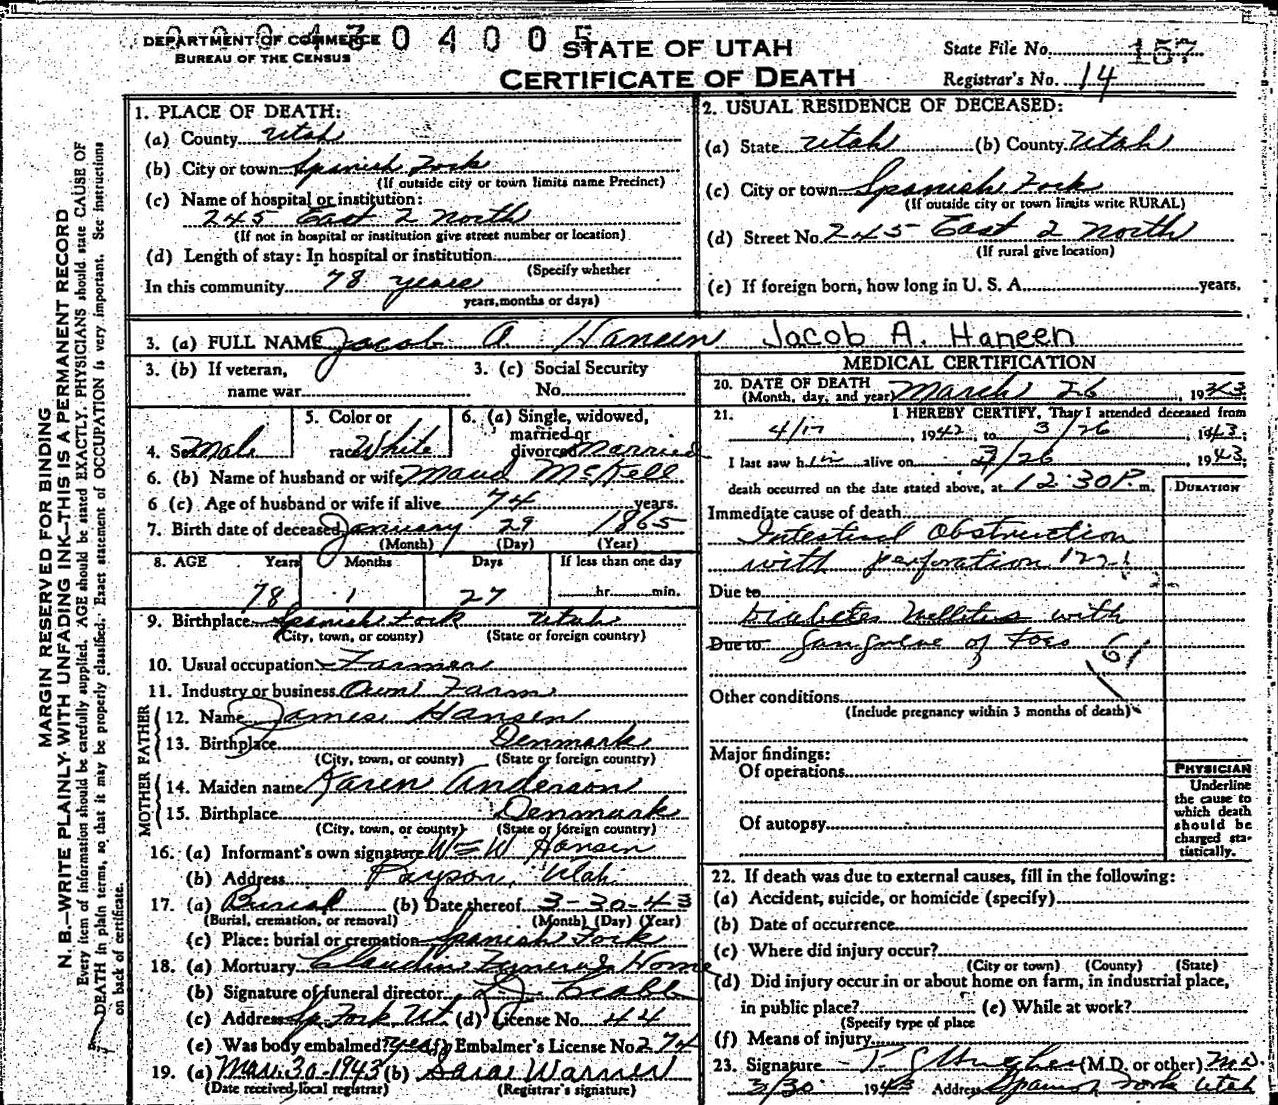 DEPARTMENT OF COMMERCE
BUREAU OF THE CENSUS
0 4 0 0 5
STATE OF UTAH
CERTIFICATE OF DEATH
State File No. 157
Registrar's No. 14
MARGIN RESERVED FOR BINDING
N. B.—WRITE PLAINLY, WITH UNFADING INK—THIS IS A PERMANENT RECORD
Every item of information should be carefully supplied. AGE should be stated EXACTLY. PHYSICIANS should state CAUSE OF
DEATH in plain terms, so that it may be properly classified. Exact statement of OCCUPATION is very important. See instructions
on back of certificate.
1. PLACE OF DEATH:
(a) County Utah
(b) City or town Spanish Fork
(If outside city or town limits name Precinct)
(c) Name of hospital or institution:
245 East 2 North
(If not in hospital or institution give street number or location)
(d) Length of stay: In hospital or institution
(Specify whether
In this community 78 years
years, months or days)
2. USUAL RESIDENCE OF DECEASED:
(a) State Utah (b) County Utah
(c) City or town Spanish Fork
(If outside city or town limits write RURAL)
(d) Street No. 245 East 2 North
(If rural give location)
(e) If foreign born, how long in U. S. A. years.
3. (a) FULL NAME Jacob A. Haneen Jacob A. Haneen
3. (b) If veteran,
name war
3. (c) Social Security
No.
4. Sex Male
5. Color or
race White
6. (a) Single, widowed,
married or
divorced Married
6. (b) Name of husband or wife Maud McKell
6 (c) Age of husband or wife if alive 74 years.
7. Birth date of deceased January 29 1865
(Month) (Day) (Year)
8. AGE Years Months Days If less than one day
78 1 27 hr. min.
9. Birthplace Spanish Fork Utah
(City, town, or county) (State or foreign country)
10. Usual occupation Farmer
11. Industry or business Own Farm
FATHER
12. Name James Hansen
13. Birthplace Denmark
(City, town, or county) (State or foreign country)
MOTHER
14. Maiden name Karen Anderson
15. Birthplace Denmark
(City, town, or county) (State or foreign country)
16. (a) Informant's own signature W W Hansen
(b) Address Payson, Utah
17. (a) Burial (b) Date thereof 3-30-43
(Burial, cremation, or removal) (Month) (Day) (Year)
(c) Place: burial or cremation Spanish Fork
18. (a) Mortuary Claudin Funeral Home
(b) Signature of funeral director
(c) Address Sp Fork Ut. (d) License No. 44
(e) Was body embalmed? yes (f) Embalmer's License No. 274
19. (a) Mar. 30-1943 (b) Sarae Warner
(Date received local registrar) (Registrar's signature)
MEDICAL CERTIFICATION
20. DATE OF DEATH
(Month, day, and year) March 26, 1943
21. I HEREBY CERTIFY, That I attended deceased from
4/17, 1942, to 3/26, 1943;
I last saw him alive on 3/26, 1943;
death occurred on the date stated above, at 12:30 P. m.
DURATION
Immediate cause of death
Intestinal Obstruction
with perforation 122
Due to
Diabetes Mellitus with
Due to Gangrene of toes 61
Other conditions
(Include pregnancy within 3 months of death)
Major findings:
Of operations
Of autopsy
PHYSICIAN
Underline
the cause to
which death
should be
charged sta-
tistically.
22. If death was due to external causes, fill in the following:
(a) Accident, suicide, or homicide (specify)
(b) Date of occurrence
(c) Where did injury occur?
(City or town) (County) (State)
(d) Did injury occur in or about home on farm, in industrial place,
in public place? (e) While at work?
(Specify type of place
(f) Means of injury
23. Signature Hughes (M.D. or other) M.D.
3/30 1943 Address Spanish Fork Utah